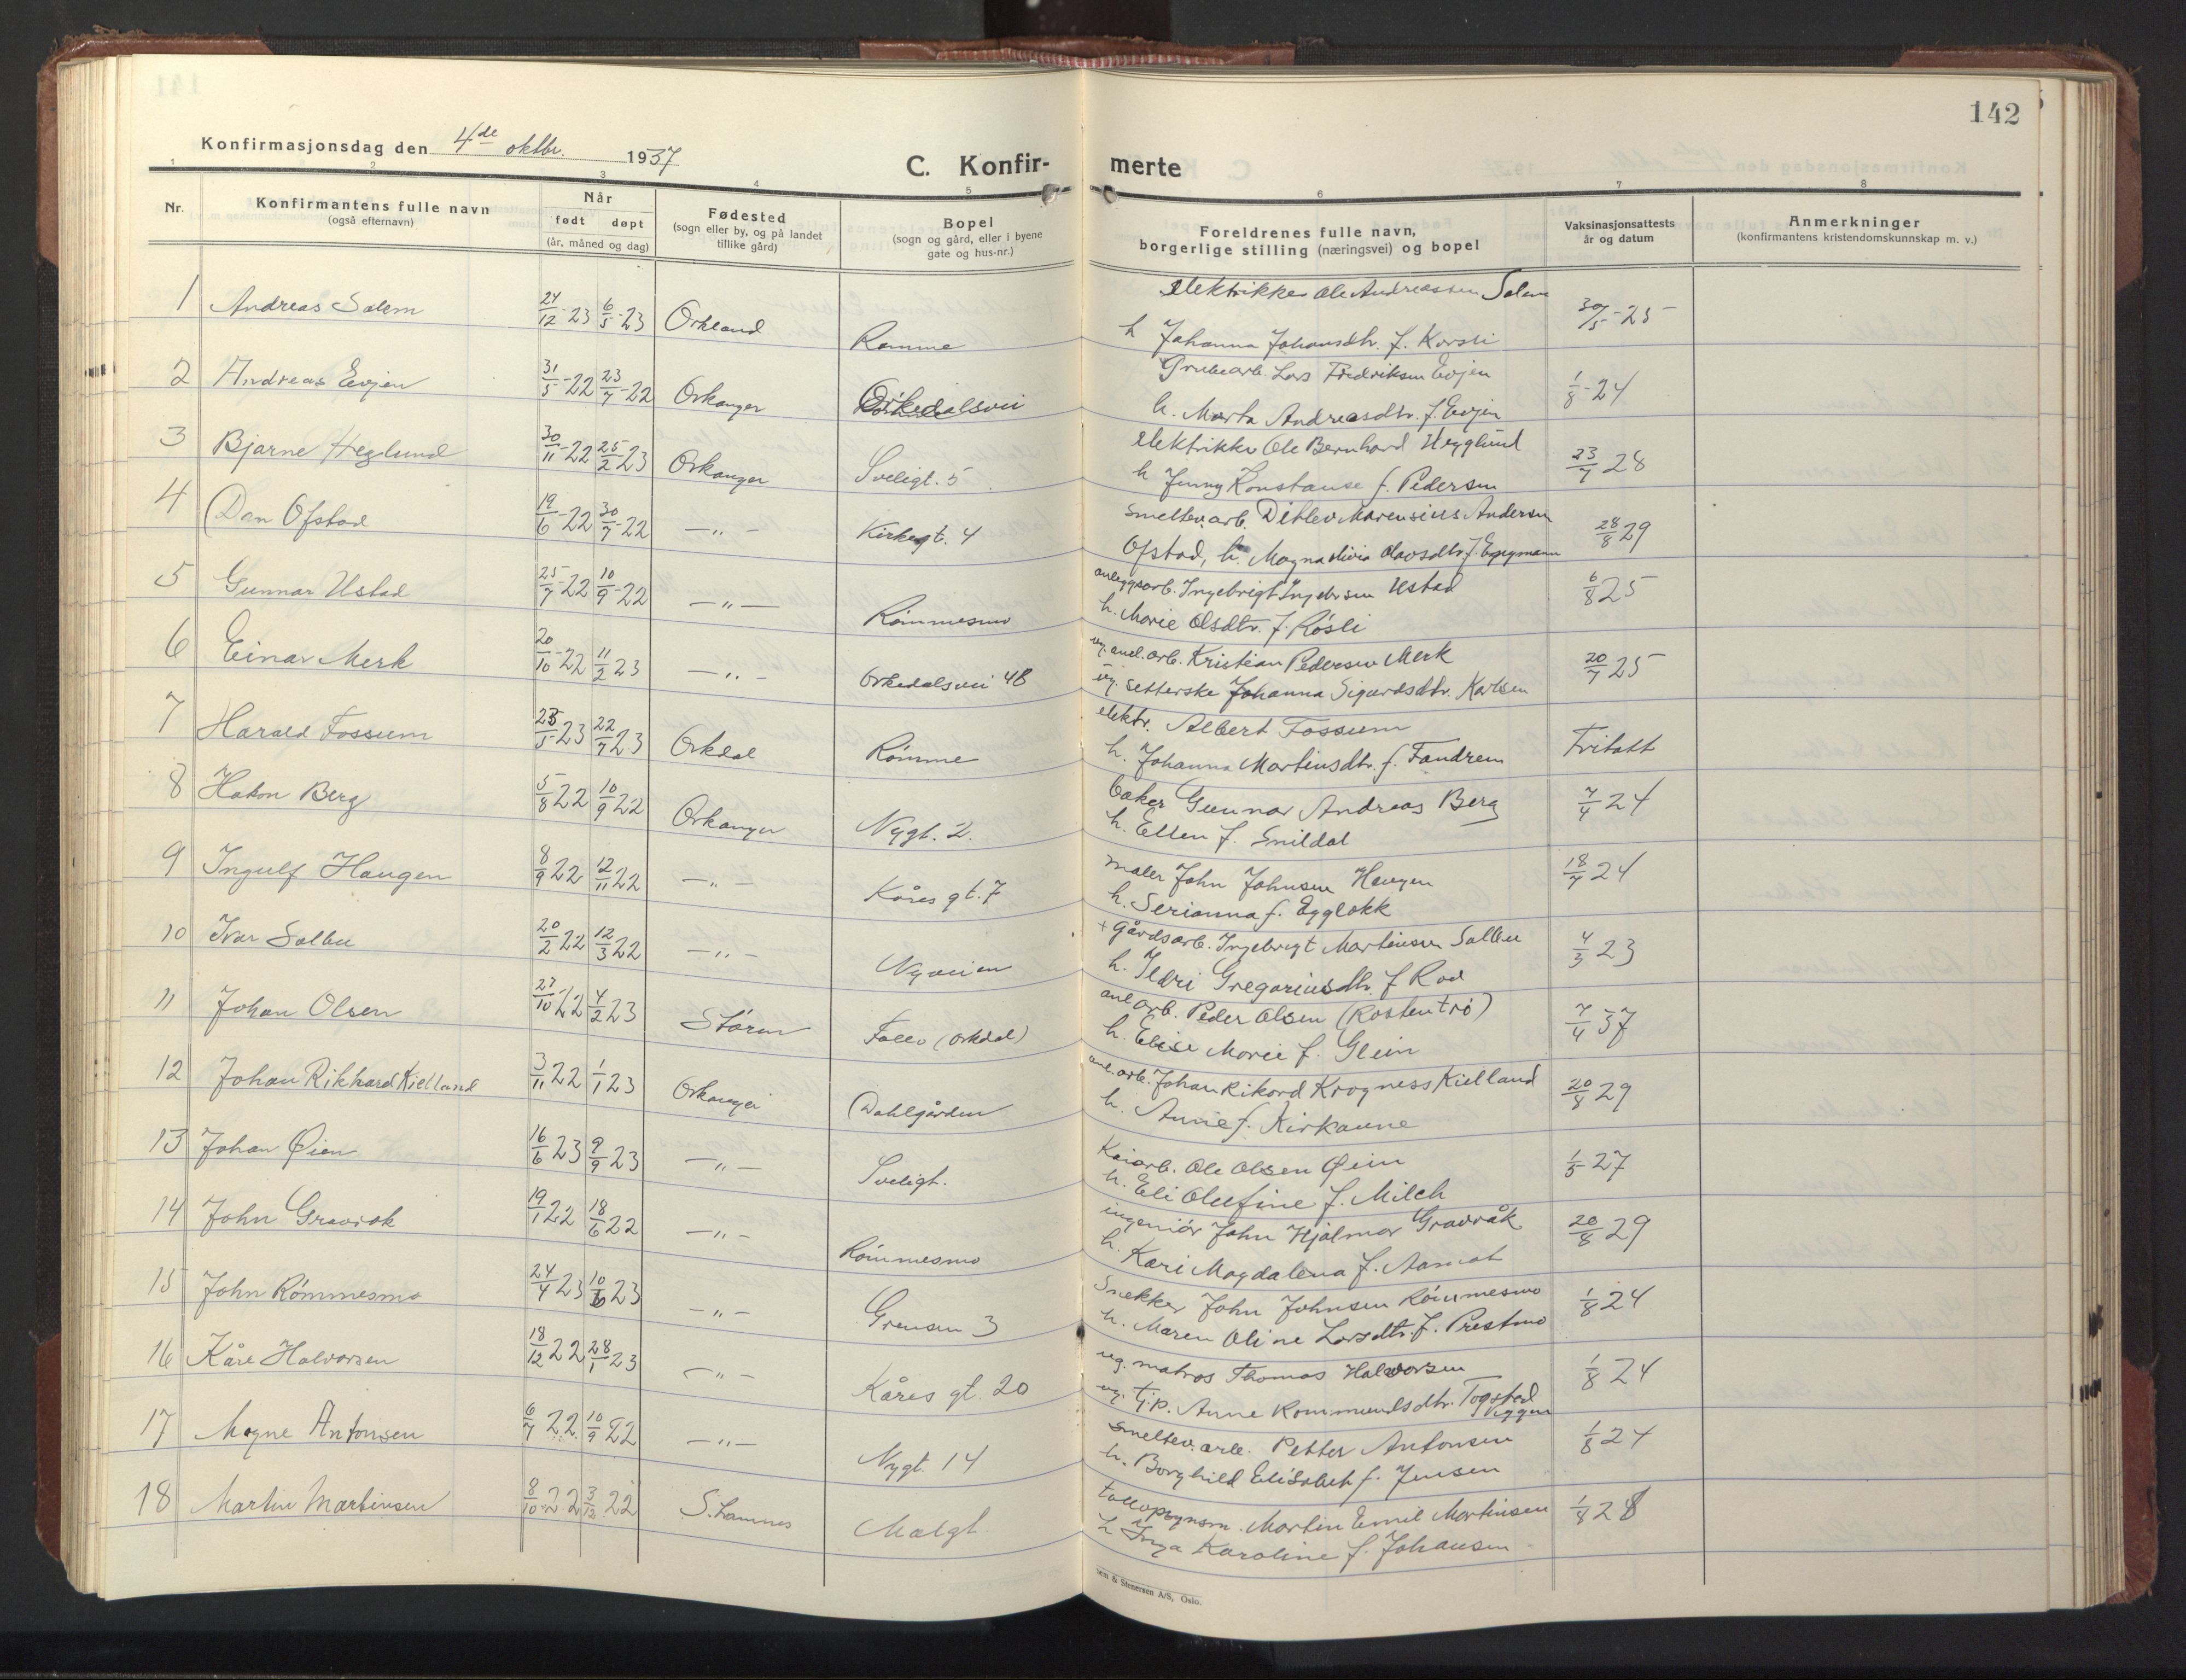 142
Konfirmasjonsdag den 4de oktbr. 1937
C. Konfir- merte
1 2 3 4 5 6 7 8
Nr.
Konfirmantens fulle navn
(også efternavn)
Når
født døpt
(år, måned og dag)
Fødested
(sogn eller by, og på landet
tillike gård)
Bopel
(sogn og gård, eller i byene
gate og hus-nr.)
Foreldrenes fulle navn,
borgerlige stilling (næringsvei) og bopel
Vaksinasjonsattests
år og datum
Anmerkninger
(konfirmantens kristendomskunnskap m. v.)
1 Andreas Solem 24/12-23 6/5-23 Orkland Rømme elektriker Ole Andreassen Solem 30/5-25
h Johanna Johansdtr. f. Korsli
2 Andreas Evjen 31/5-22 23/7-22 Orkanger Orkedalsvei Grubearb. Lars Fredriksen Evjen 1/8-24
h. Marta Andreasdtr. f. Evjen
3 Bjarne Heglund 30/11-22 25/2-23 Orkanger Sveligt. 5 elektriker Ole Bernhard Hegglund 23/7 28
h Jenny Konstanse f. Pedersen
4 Dan Ofstad 19/6-22 30/7-22 —„— Kirkegt. 4 smeltev.arb. Ditlev Marensius Andersen 28/8 29
Ofstad, h. Magna Olavsdtr. f.
5 Gunnar Ustad 25/7-22 10/9-22 —„— Rømmesmo anleggsarb. Ingebrigt Ingebr.sen Ustad 6/8 25
h. Marie Olsdtr. f. Røsli
6 Einar Merk 20/10-22 11/2 23 —„— Orkedalsvei 48 ug. anl.arb. Kristian Pedersen Merk 20/7 25
ug. setterske Johanna Sigurdsdtr. Karlsen
7 Harald Fossum 25/5-23 22/7 23 Orkdal Rømme elektr. Albert Fossum Fritatt
h. Johanna Martinsdtr. f. Fandrem
8 Håkon Berg 5/8 22 10/9 22 Orkanger Nygt. 2. baker Gunnar Andreas Berg 7/4 24
h. Ellen f. Snildal
9 Ingulf Haugen 8/9 22 12/11 22 —„— Kåres gt. 7 maler John Johnsen Haugen 18/7 24
h. Serianna f. Egglokk
10 Ivar Solbu 20/2 22 12/3 22 —„— Nyveien + gårdsarb. Ingebrigt Martinsen Solbu 4/3 23
h. Ildri Gregariusdtr. f Rod
11 Johan Olsen 27/10-22 4/2 23 Støren Follo (Orkdal) anl arb. Peder Olsen (Rostentrø) 7/4 37
h. Elise Marie f. Glein
12 Johan Rikhard Kielland 3/11 22 1/1 23 Orkanger Dahlgården anl. arb. Johan Rikard Krogness Kielland 20/8 29
h. Anne f. Kirkaune
13 Johan Øien 16/6 23 9/9 23 —„— Sveligt. Kaiarb. Ole Olsen Øien 1/5 27
h. Eli Olufine f. Milch
14 John Gravråk 19/1 22 18/6 22 —„— Rømmesmo ingeniør John Hjalmar Gravråk 20/8 29
h. Kari Magdalena f. Aamot
15 John Rømmesmo 24/4 23 10/6 23 —„— Grensen 3 Snekker John Johnsen Rømmesmo 1/8 24
h. Maren Oline Larsdtr. f. Prestmo
16 Kåre Halvorsen 18/12 22 28/1 23 —„— Kåres gt. 20 ug. matros Thomas Halvorsen 1/8 24
ug. tj.p. Anne Rommundsdtr. Togstad
17 Magne Antonsen 6/7 22 10/9 22 —„— Nygt. 14 smeltev. arb. Petter Antonsen 1/8 24
h. Borghild Elisabeth f. Jensen
18 Martin Martinsen 8/10-22 3/12 22 Malgt. tolloppsynsm. Martin Emil Martinsen 1/8 28
h Inga Karoline f. Johansen
& Stenersen A/S, Oslo.